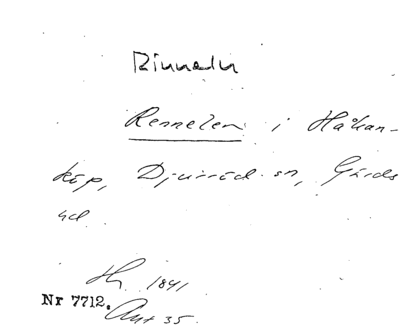 Rinneln
Rennelen i Håkan-
köp, Djurröd sn, Gärds
hd.
Hy 1841
Nr 7712. Ant 35.